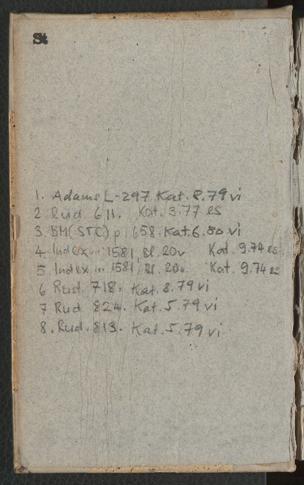 St
1. Adams L-297 Kat. 8.79 vi
2 Rud 611. Kat. 3.77 es
3. BM(STC) p. 658. Kat. 6.80 vi
4. Index... 1581, Bl. 20v Kat. 9.74 es
5 Index... 1581, Bl. 20v Kat. 9.74 es
6 Rud. 718. Kat. 8.79 vi
7 Rud 824. Kat. 5.79 vi
8. Rud. 813. Kat. 5.79 vi